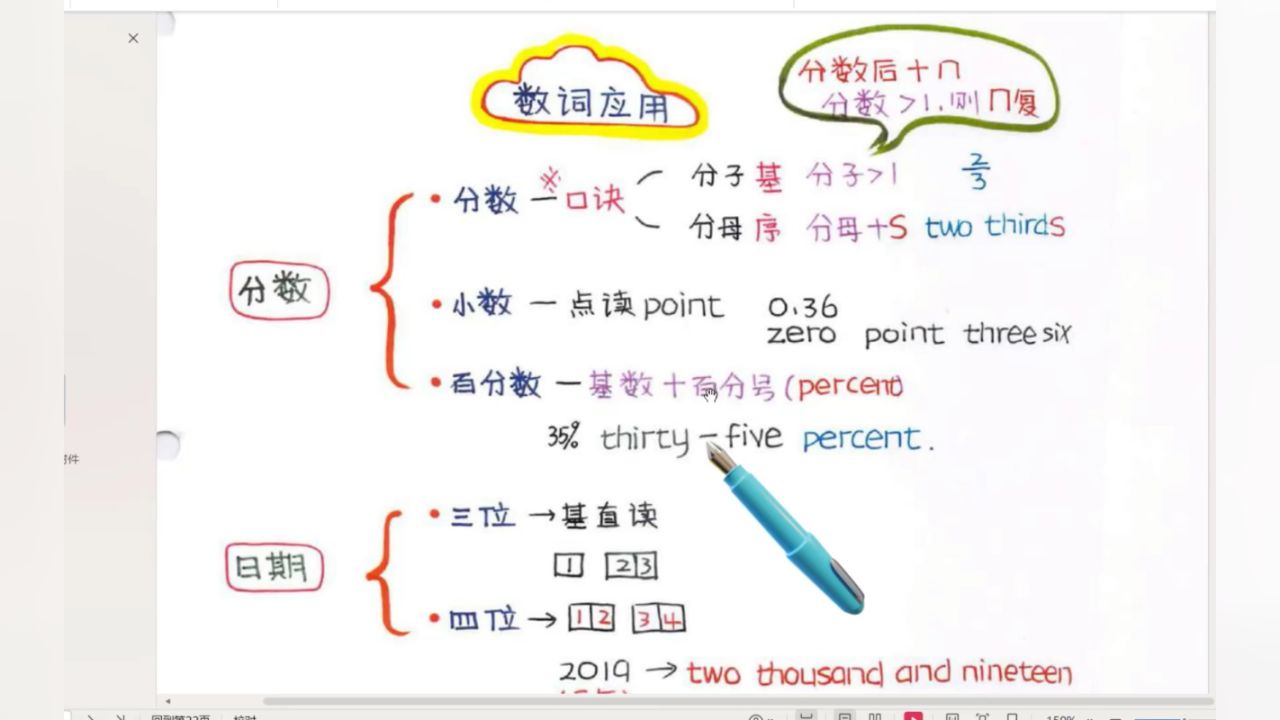 数词应用
分数后+几
分数>1.则几复
分数 - ※口诀
分子基 分子>1 2/3
分母序 分母+S two thirds
分数
小数 - 点读point 0.36
zero point three six
百分数 - 基数+百分号(percent)
35% thirty-five percent.
三位→基直读
1 23
日期
四位→ 12 34
2019 → two thousand and nineteen
回到第22页 校对
150%